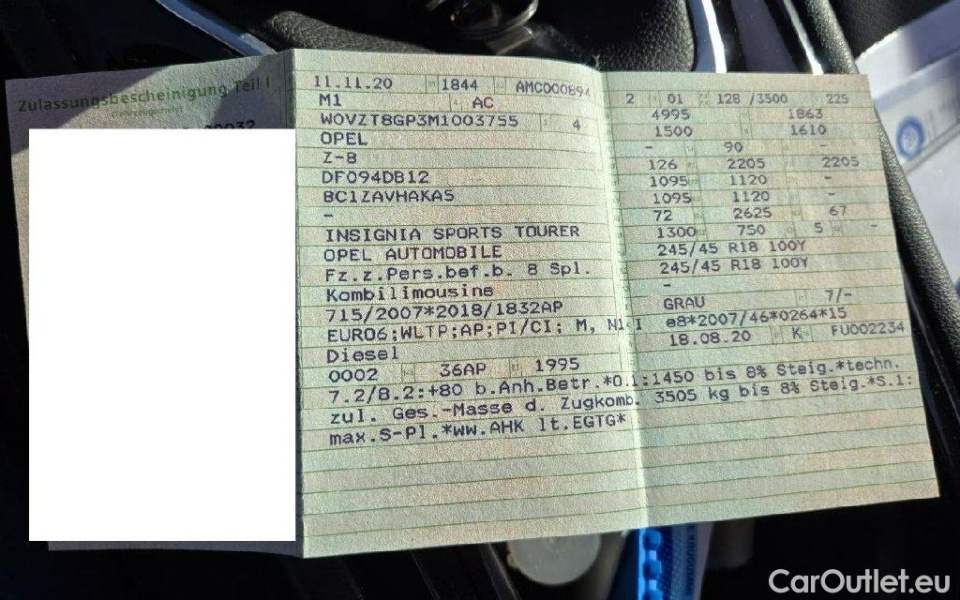 Zulassungsbescheinigung Teil I
11.11.20 1844 AMC000894
M1 AC
WOVZT8GP3M1003755 4
OPEL
Z-8
DF094DB12
BC1ZAVHAKA5
-
INSIGNIA SPORTS TOURER
OPEL AUTOMOBILE
Fz.z.Pers.bef.b. 8 Spl.
Kombilimousine
715/2007*2018/1832AP
EURO6;WLTP;AP;PI/CI; M, N1 I
Diesel
0002 36AP 1995
7.2/8.2:+80 b.Anh.Betr.*O.1:1450 bis 8% Steig.*techn.
zul. Ges.-Masse d. Zugkomb. 3505 kg bis 8% Steig.*S.1:
max.S-Pl.*WW.AHK lt.EGTG*
2 01 128 /3500 225
4995 1863
1500 1610
- 90 -
126 2205 2205
1095 1120 -
1095 1120 -
72 2625 67
1300 750 5 -
245/45 R18 100Y
245/45 R18 100Y
-
GRAU 7/-
e8*2007/46*0264*15
18.08.20 K FU002234
CarOutlet.eu